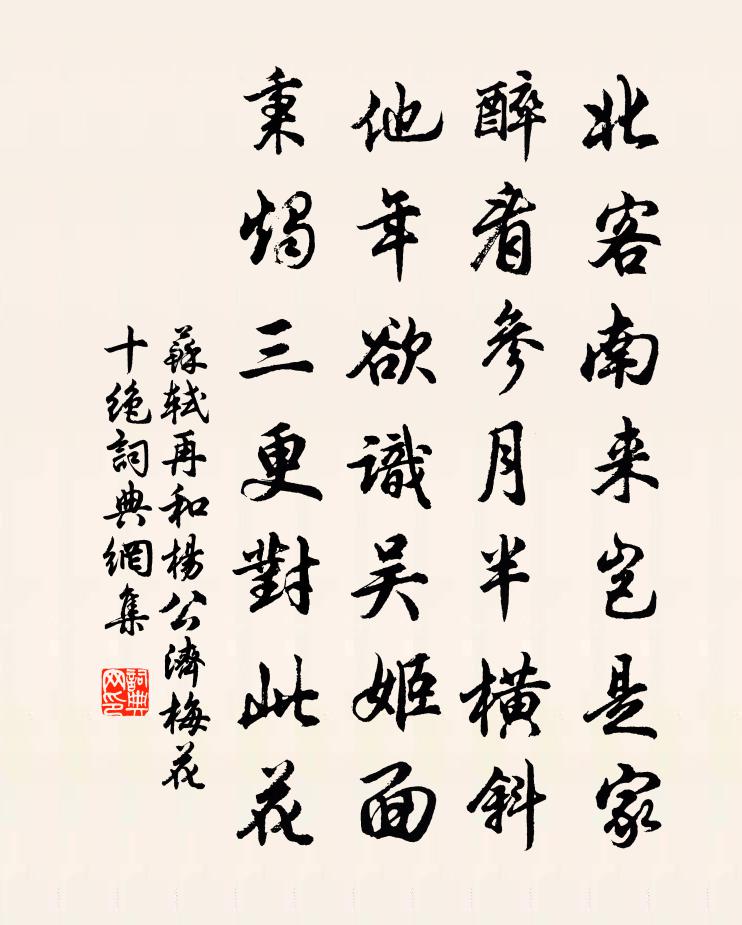 北客南来豈是家
醉看參月半橫斜
他年欲識吳姬面
秉燭三更對此花
蘇軾再和楊公濟梅花
十絕詞典網集
詞典網印